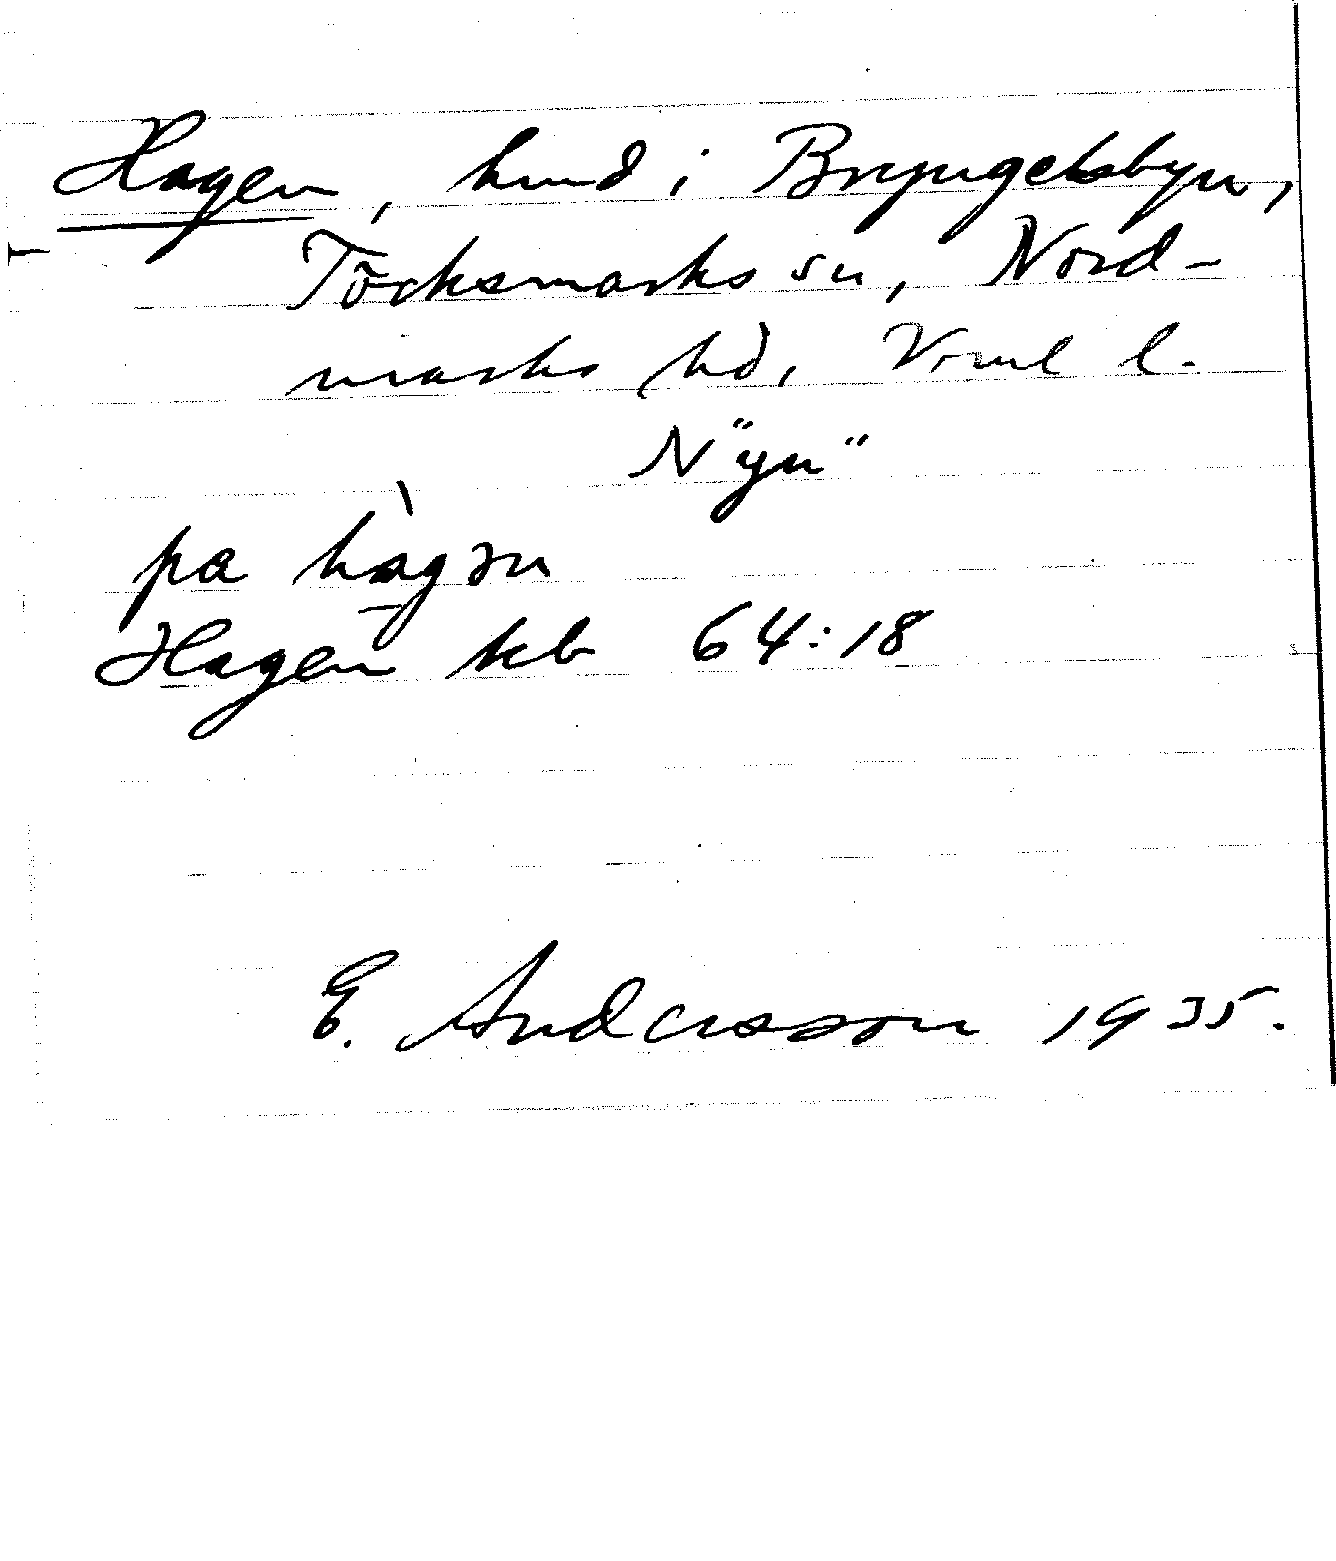 Hagen, hmd i Bryngelsbyn,
Töcksmarks sn, Nord-
marks hd, Vrml l.
N "yn"
pa hàgən
Hagen kb 64:18
E. Andersson 1935.